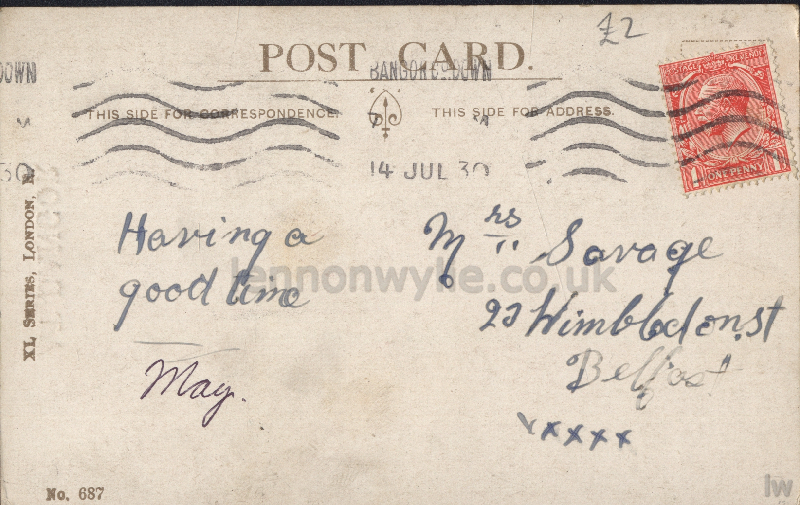 £2
POST CARD.
DOWN
BANGOR Co DOWN
THIS SIDE FOR CORRESPONDENCE.
THIS SIDE FOR ADDRESS.
30
14 JUL 30
POSTAGE
ONE PENNY
XL SERIES, LONDON,
Having a
good time
May.
Mrs Savage
23 Wimbledon.st
Belfast
xxxxx
lennonwylie.co.uk
No. 687
lw